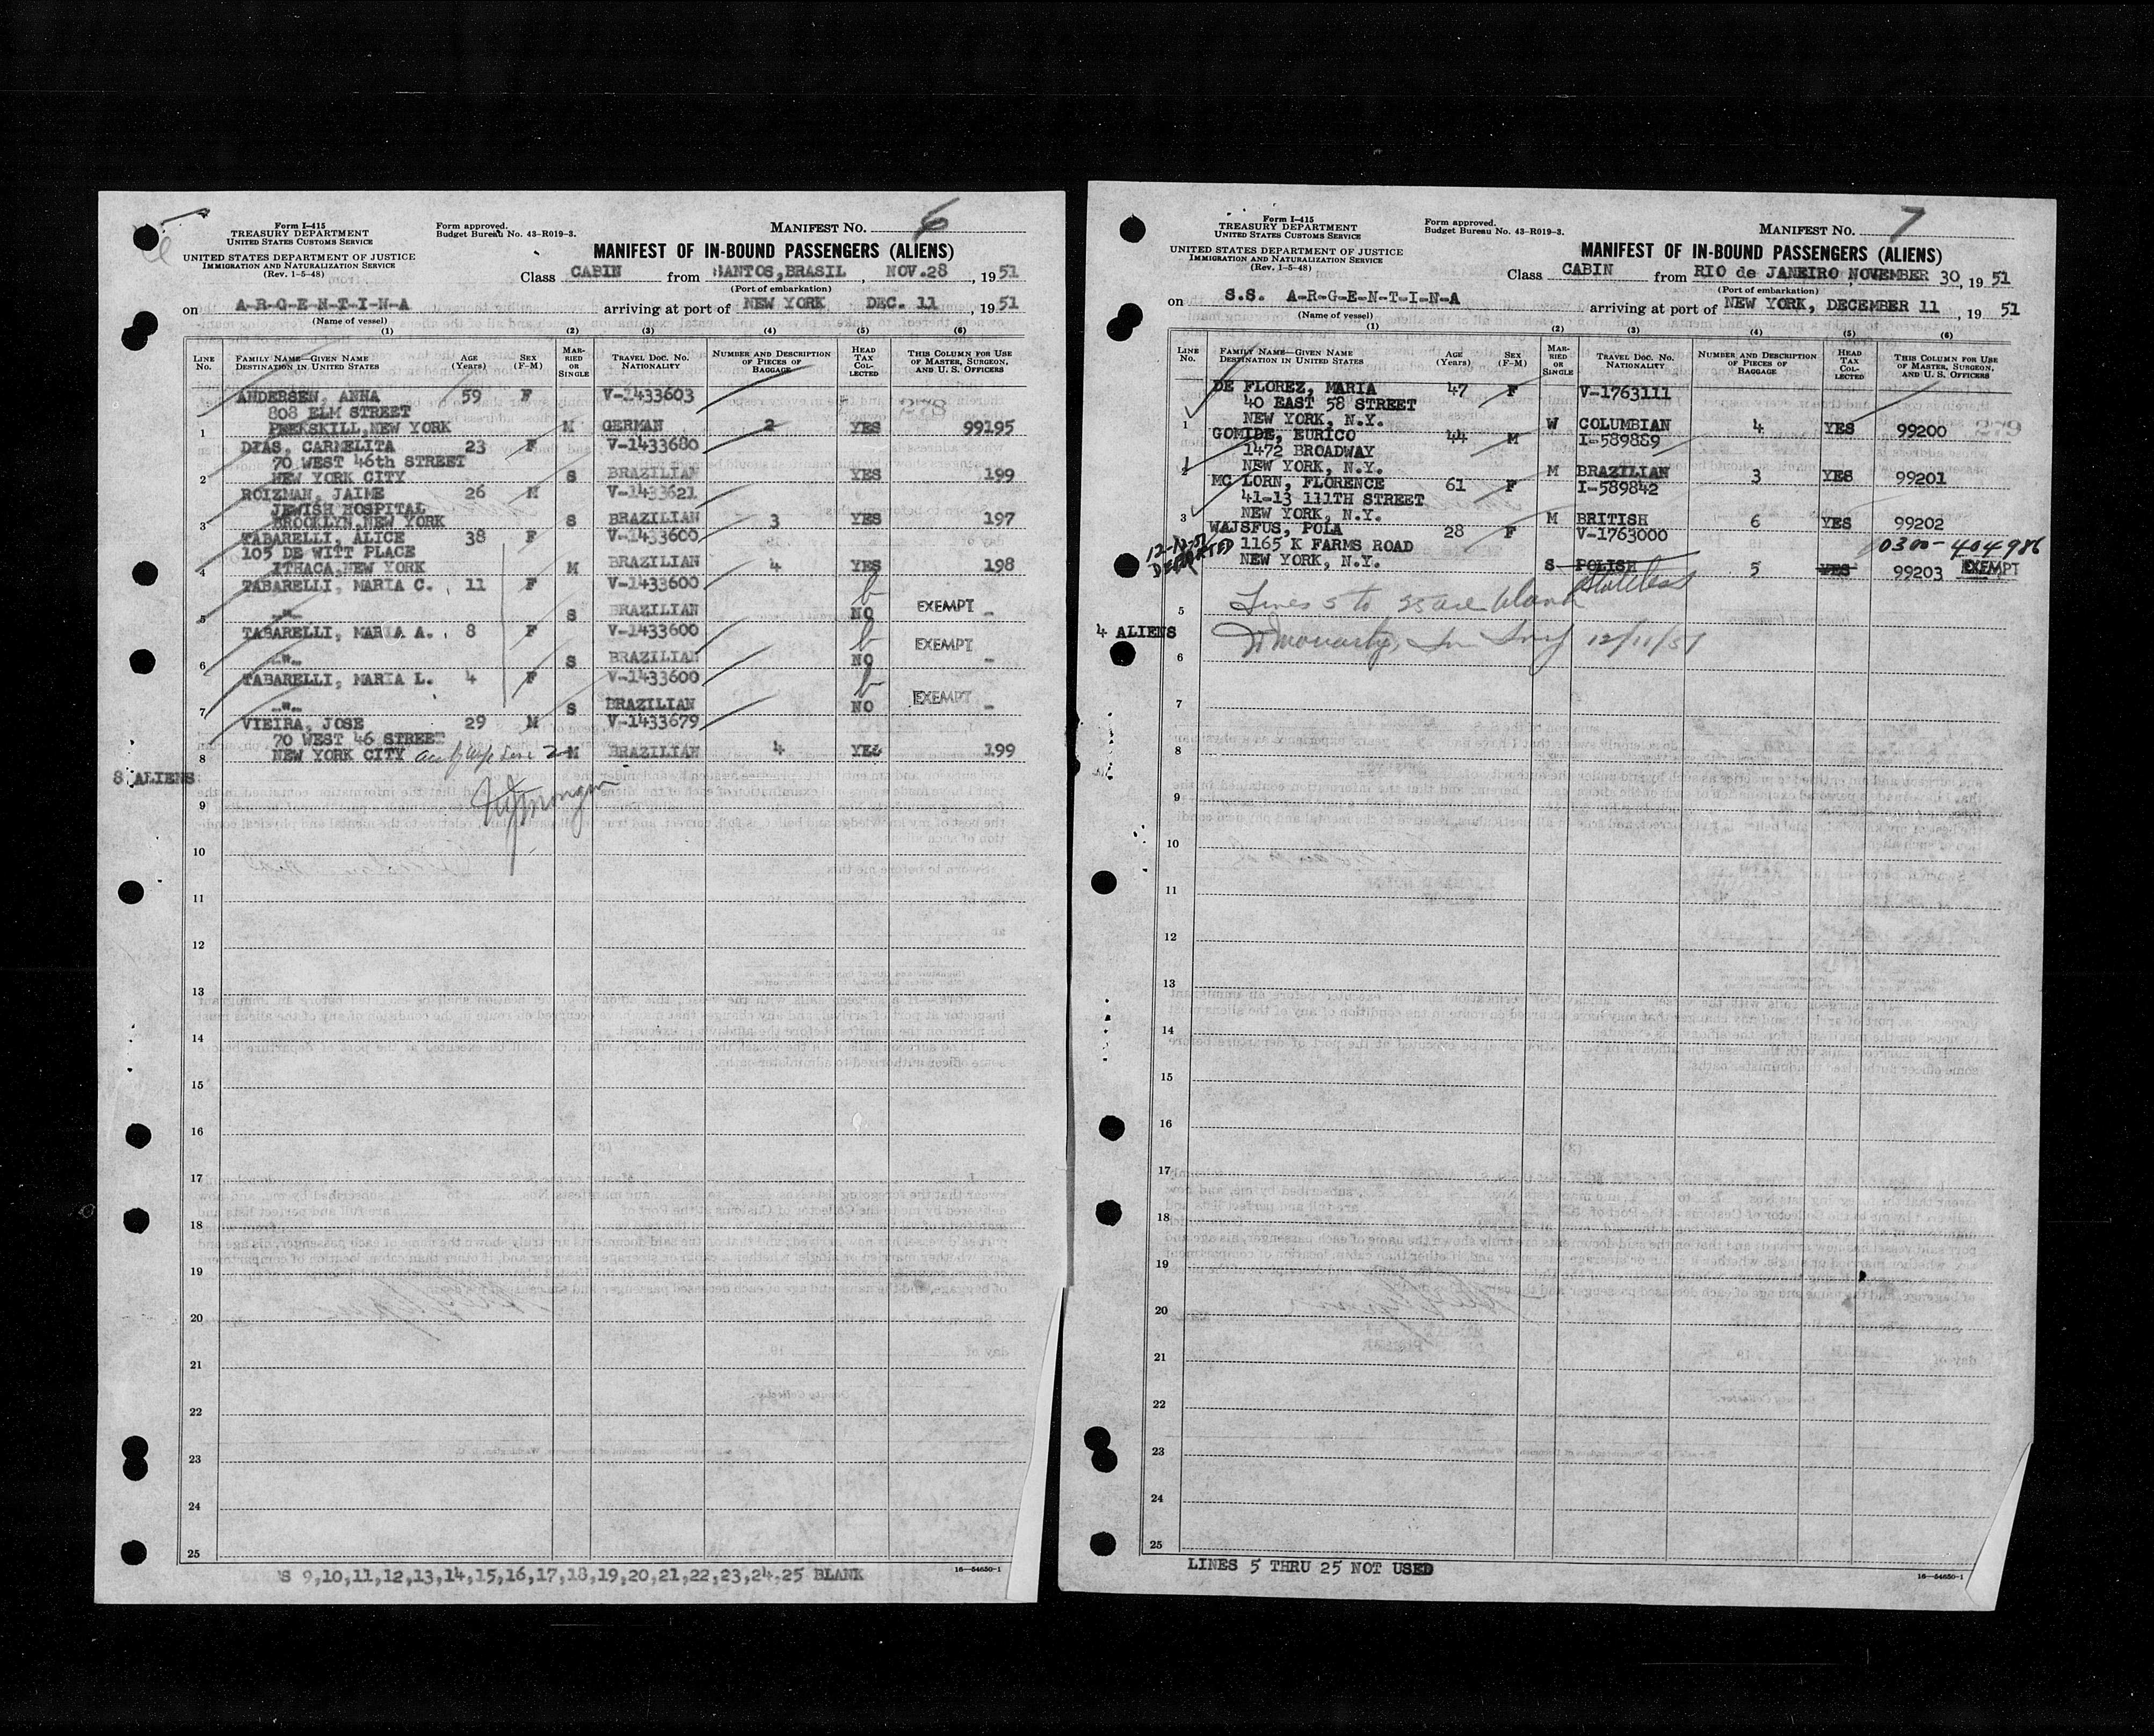 Form I-415
TREASURY DEPARTMENT
UNITED STATES CUSTOMS SERVICE
Form approved.
Budget Bureau No. 43-R019-3.
MANIFEST NO. 6
UNITED STATES DEPARTMENT OF JUSTICE
IMMIGRATION AND NATURALIZATION SERVICE
(Rev. 1-5-48)
MANIFEST OF IN-BOUND PASSENGERS (ALIENS)
Class CABIN from SANTOS, BRASIL, NOV. 28, 1951
(Port of embarkation)
on A-R-G-E-N-T-I-N-A arriving at port of NEW YORK DEC. 11, 1951
(Name of vessel)
(1) (2) (3) (4) (5) (6)
LINE No. FAMILY NAME—GIVEN NAME DESTINATION IN UNITED STATES AGE (Years) SEX (F-M) MARRIED OR SINGLE TRAVEL DOC. NO. NATIONALITY NUMBER AND DESCRIPTION OF PIECES OF BAGGAGE HEAD TAX COLLECTED THIS COLUMN FOR USE OF MASTER, SURGEON, AND U. S. OFFICERS
ANDERSEN, ANNA 59 F V-1433603
808 ELM STREET 278
1 PEEKSKILL, NEW YORK M GERMAN 2 YES 99195
DIAS, CARMELITA 23 F V-1433680
70 WEST 46th STREET
2 NEW YORK CITY S BRAZILIAN YES 199
ROIZMAN, JAIME 26 M V-1433621
JEWISH HOSPITAL
3 BROOKLYN, NEW YORK S BRAZILIAN 3 YES 197
TABARELLI, ALICE 38 F V-1433600
105 DE WITT PLACE
4 ITHACA, NEW YORK M BRAZILIAN 4 YES 198
TABARELLI, MARIA C. 11 F V-1433600
5 -"- S BRAZILIAN NO EXEMPT -
TABARELLI, MARIA A. 8 F V-1433600
6 -"- S BRAZILIAN NO EXEMPT -
TABARELLI, MARIA L. 4 F V-1433600
7 -"- S BRAZILIAN NO EXEMPT -
VIEIRA, JOSE 29 M V-1433679
70 WEST 46 STREET
8 NEW YORK CITY M BRAZILIAN 4 YES 199
8 ALIENS
9
10
11
12
13
14
15
16
17
18
19
20
21
22
23
24
25
'S 9,10,11,12,13,14,15,16,17,18,19,20,21,22,23,24,25 BLANK
16—54650-1
Form I-415
TREASURY DEPARTMENT
UNITED STATES CUSTOMS SERVICE
Form approved.
Budget Bureau No. 43-R019-3.
MANIFEST NO. 7
UNITED STATES DEPARTMENT OF JUSTICE
IMMIGRATION AND NATURALIZATION SERVICE
(Rev. 1-5-48)
MANIFEST OF IN-BOUND PASSENGERS (ALIENS)
Class CABIN from RIO de JANEIRO, NOVEMBER 30, 1951
(Port of embarkation)
on S.S. A-R-G-E-N-T-I-N-A arriving at port of NEW YORK, DECEMBER 11, 1951
(Name of vessel)
(1) (2) (3) (4) (5) (6)
LINE No. FAMILY NAME—GIVEN NAME DESTINATION IN UNITED STATES AGE (Years) SEX (F-M) MARRIED OR SINGLE TRAVEL DOC. NO. NATIONALITY NUMBER AND DESCRIPTION OF PIECES OF BAGGAGE HEAD TAX COLLECTED THIS COLUMN FOR USE OF MASTER, SURGEON, AND U. S. OFFICERS
DE FLOREZ, MARIA 47 F V-1763111
40 EAST 58 STREET
1 NEW YORK, N.Y. W COLUMBIAN 4 YES 99200 279
GOMIDE, EURICO 44 M I-589889
1472 BROADWAY
2 NEW YORK, N.Y. M BRAZILIAN 3 YES 99201
MC LORN, FLORENCE 61 F I-589842
41-13 111TH STREET
3 NEW YORK, N.Y. M BRITISH 6 YES 99202
WAJSFUS, POLA 28 F V-1763000
1165 K FARMS ROAD 0300-404986
NEW YORK, N.Y. S POLISH 5 YES 99203 EXEMPT
Stateless
5 Lines 5 to 25 are blank
4 ALIENS
6 12/11/51
7
8
9
10
11
12
13
14
15
16
17
18
19
20
21
22
23
24
25
LINES 5 THRU 25 NOT USED
16—54650-1